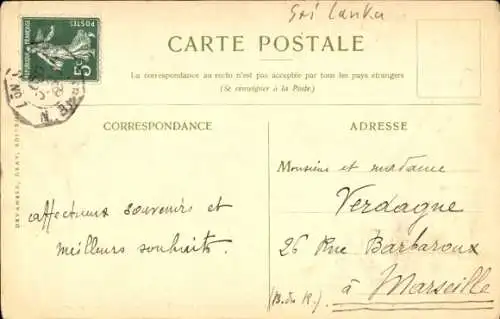 Sri Lanka
CARTE POSTALE
La correspondance au recto n'est pas acceptée par tous les pays étrangers
(Se renseigner à la Poste)
RÉPUBLIQUE FRANÇAISE
POSTES
5c
CORRESPONDANCE
affectueux souvenirs et
meilleurs souhaits.
ADRESSE
Monsieur et madame
Verdagne
26 Rue Barbaroux
à Marseille
(B. du R.)